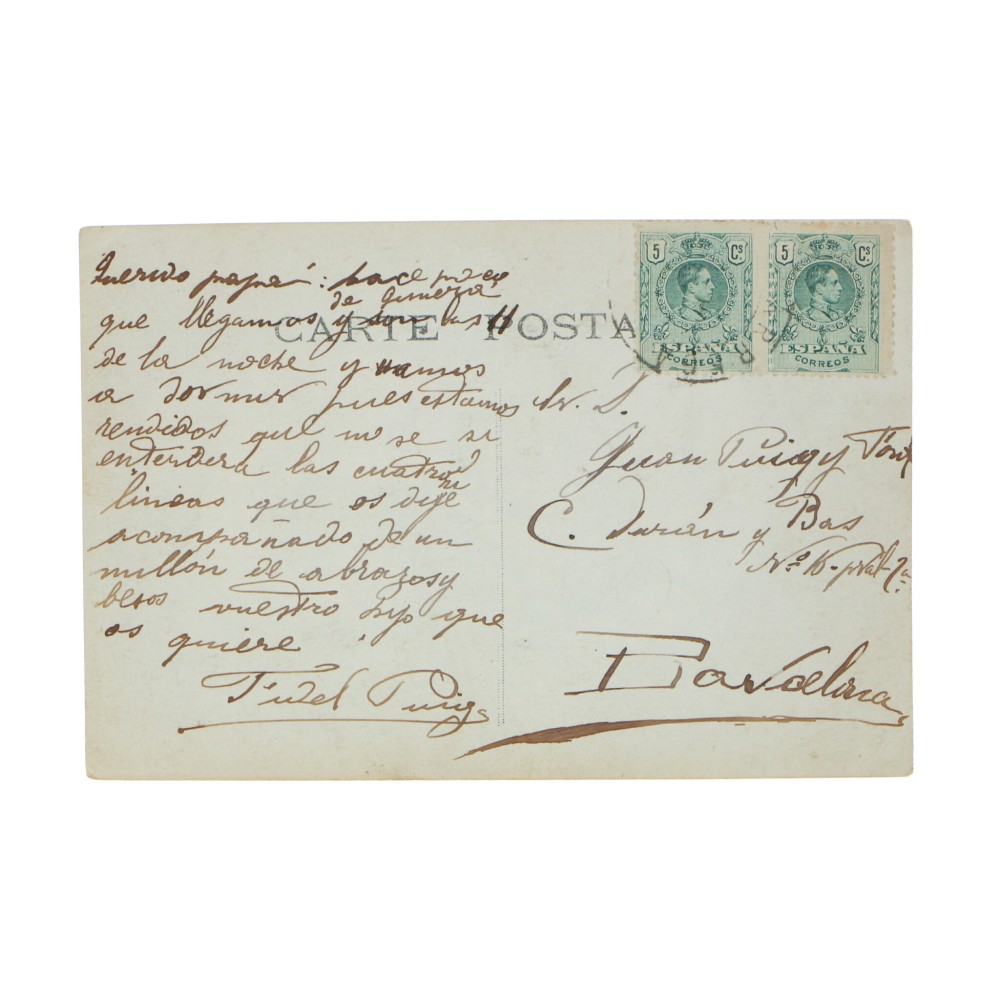 Querido papá: hace poco
que llegamos de y son las 11
CARTE POSTA
de la noche y vamos
a dormir pues estamos
rendidos que no se si
entendera las cuatro
lineas que os dije
acompañado de un
millón de abrazos y
besos vuestro hijo que
os quiere
Fidel Puig
5 Cs
ESPAÑA
CORREOS
5 Cs
ESPAÑA
CORREOS
Sr. D.
Juan Puig y Font
C. Durán y Bas
Nº pral
Barcelona